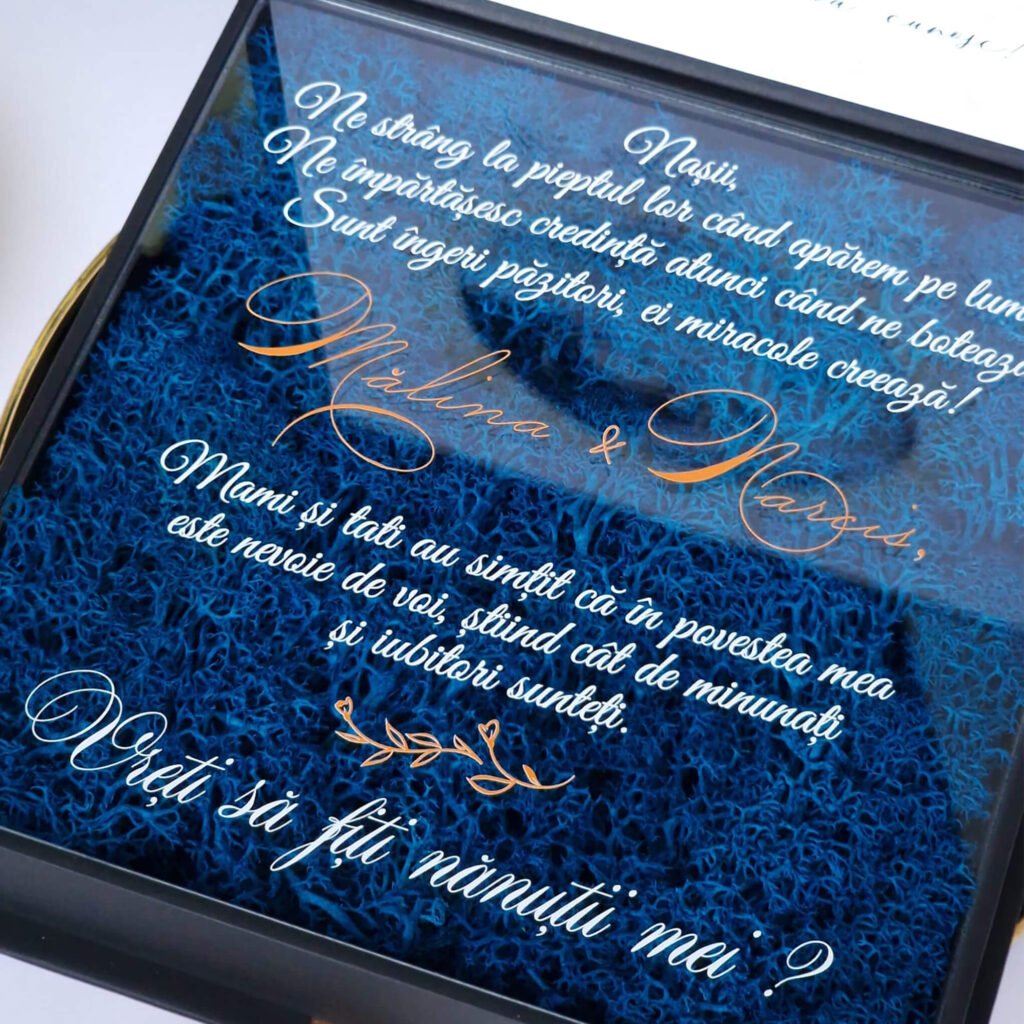 cunosc!
Nașii,
Ne strâng la pieptul lor când apărem pe lum
Ne împărtășesc credință atunci când ne botează
Sunt îngeri păzitori, ei miracole creează!
Mălina & Narcis,
Mami și tati au simțit că în povestea mea
este nevoie de voi, știind cât de minunați
și iubitori sunteți.
Vreți să fiți nănuții mei ?